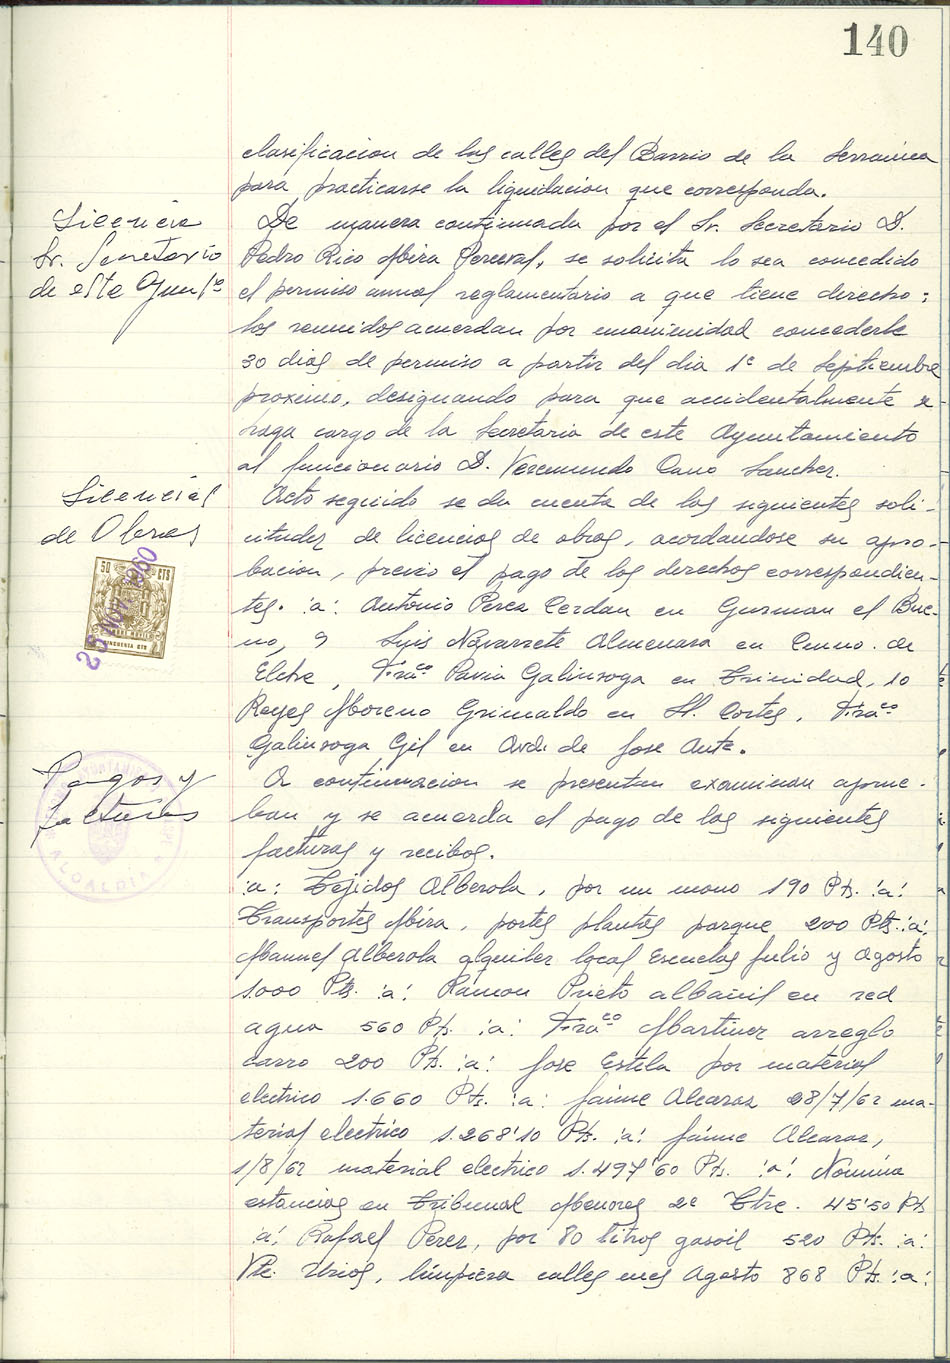 140
clasificacion de las calles del Barrio de la Serranica
para practicarse la liquidacion que corresponda.
Licencia
Sr. Secretario
de este Aymtº
De manera continuada por el Sr. Secretario D.
Pedro Rico Mira Perceval, se solicita lo sea concedido
el permiso anual reglamentario a que tiene derecho;
los reunidos acuerdan por unanimidad concederle
30 dias de permiso a partir del dia 1º de Septiembre
proximo, designando para que accidentalmente se
haga cargo de la Secretaria de este Ayuntamiento
al funcionario D. Veremundo Cano Sanchez.
Licencias
de Obras
Acto seguido se da cuenta de las siguientes soli-
citudes de licencias de obras, acordandose su apro-
bacion, previo el pago de los derechos correspondien-
tes. :a: Antonio Perez Cerdan en Guzman el Bue-
no, 9 Luis Navarrete Almenara en Camno. de
Elche, Franco Pavia Galinsoga en Trinidad, 10
Reyes Moreno Grimaldo en H. Cortes, Franco
Galinsoga Gil en Avd. de Jose Ante.
50 CTS
25 NOV. 1960
Pagos y
facturas
ALCALDIA
A continuacion se presentan examinan aprue-
ban y se acuerda el pago de las siguientes
facturas y recibos.
:a: Tejidos Alberola, por un mono 190 Pts. :a:
Transportes Mira, portes plantas parque 200 Pts. :a:
Manuel Alberola alquiler local Escuelas Julio y Agosto
1.000 Pts. :a: Ramon Prieto albañil en red
agua 560 Pts. :a: Franco Martinez arreglo
carro 200 Pts. :a: Jose Estela por material
electrico 1.660 Pts. :a: Jaime Alcaraz 28/7/62 ma-
terial electrico 1.268'10 Pts. :a: Jaime Alcaraz,
1/8/62 material electrico 1.497'60 Pts. :a: Nómina
estancias en Tribunal Menores 2º Ttre. 45'50 Pts
:a: Rafael Perez, por 80 litros gasoil 520 Pts. :a:
Vte. Urios, limpieza calles mes Agosto 868 Pts. :a: